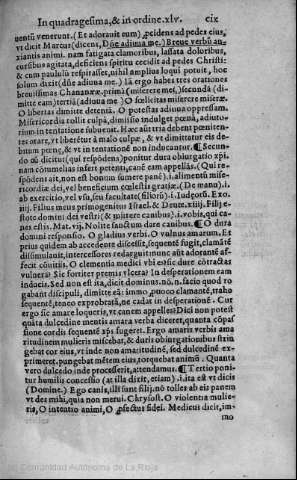 In quadragesima, & in ordine. xlv. cix
uentũ venerunt. (Et adorauit eum) ,pcidens ad pedes eius,
vt dicit Marcus (dicens, Dñe adiuua me.) Breue verbũ an-
xiantis animi. nam fatigata clamoribus, lassata doloribus,
cursibus agitata, deficiens spiritu cecidit ad pedes Christi:
& cum paululũ respirasset, nihil amplius loqui potuit, hoc
solum dixit (dñe adiuua me.) Iã ergo habes tres orationes
breuissimas Chananæ. primã (miserere mei,) secundã (di-
mitte eam) tertiã (adiuua me) O fœlicitas miserere miseræ.
O libertas dimitte detentã. O potestas adiuua oppressam.
Misericordia tollit culpã, dimissio indulget pœnã, adiuto-
rium in tentatione subuenit. Hæc aũt tria debent pœniten-
tes orare, vt liberẽtur à malo culpæ, & vt dimittatur eis de-
bitum pœnæ, & vt in tentationẽ non inducantur. ¶ Secun-
do
nam commotus
spõdens ait, non est bonum sumere panẽ) .i. alimentũ mise-
ricordiæ dei, vel beneficium cœlestis gratiæ. (De mano) .i.
ab exercitio, vel vsu, seu facultate (filiorũ) .i. Iudęorũ. Exo.
iiij. Filius meus primogenitus Israel. & Deut. xiiij. Filij e-
stote domini dei vestri (& mittere canibus) .i. vobis, qui ca-
nes estis. Mat. vij. Nolite sanctum dare canibus. ¶ O dura
domini responsio. O gladius verbi. O vulnus amarum. Et
prius quidem ab accedente discessit, sequentẽ fugit, clamãtẽ
dissimulauit, intercessores redarguit: nunc aũt adorantẽ af-
fecit cõuitijs. O clementis medici vbi est? sic durè cõtractas
vulnera? Sic fortiter premis vlcera? In desperationem eam
inducis. Sed non est ita, dicit dominus. nõ. n. facio quod ro-
gabãt discipuli, dimitte eã: immo ,puoco clamantẽ, traho
sequentẽ, teneo exprobratã, ne cadat in desperationẽ. Cur
ergo sic amarè loqueris, vt canem appelles? Dici non potest
quãta dulcedine mentis amara verba diceret, quanta cõpas-
sione cordis sequentẽ xp̃s fugeret. Ergo amaris verbis ama
ritudinem mulieris miscebat, & duris obiurgationibus strin
gebat cor eius, vt inde non amaritudinẽ, sed dulcedinẽ ex-
primeret. pungebat mẽtem eius, torquebat animã. Quanta
vero dulcedo inde processerit, attendamus. ¶ Tertio poni-
tur humilis concessio (at illa dixit, etiam) .i. ita est vt dicis
(Domine.) Ego canis, illi sunt filij. nõ tolles ab eis panem
vt des mihi, quia non merui. Chrysost. O violentia mulie-
ris, O intentio animi, O ,pfectus fidei. Medicus dicit, im-
mo
Comunidad Autónoma de La Rioja